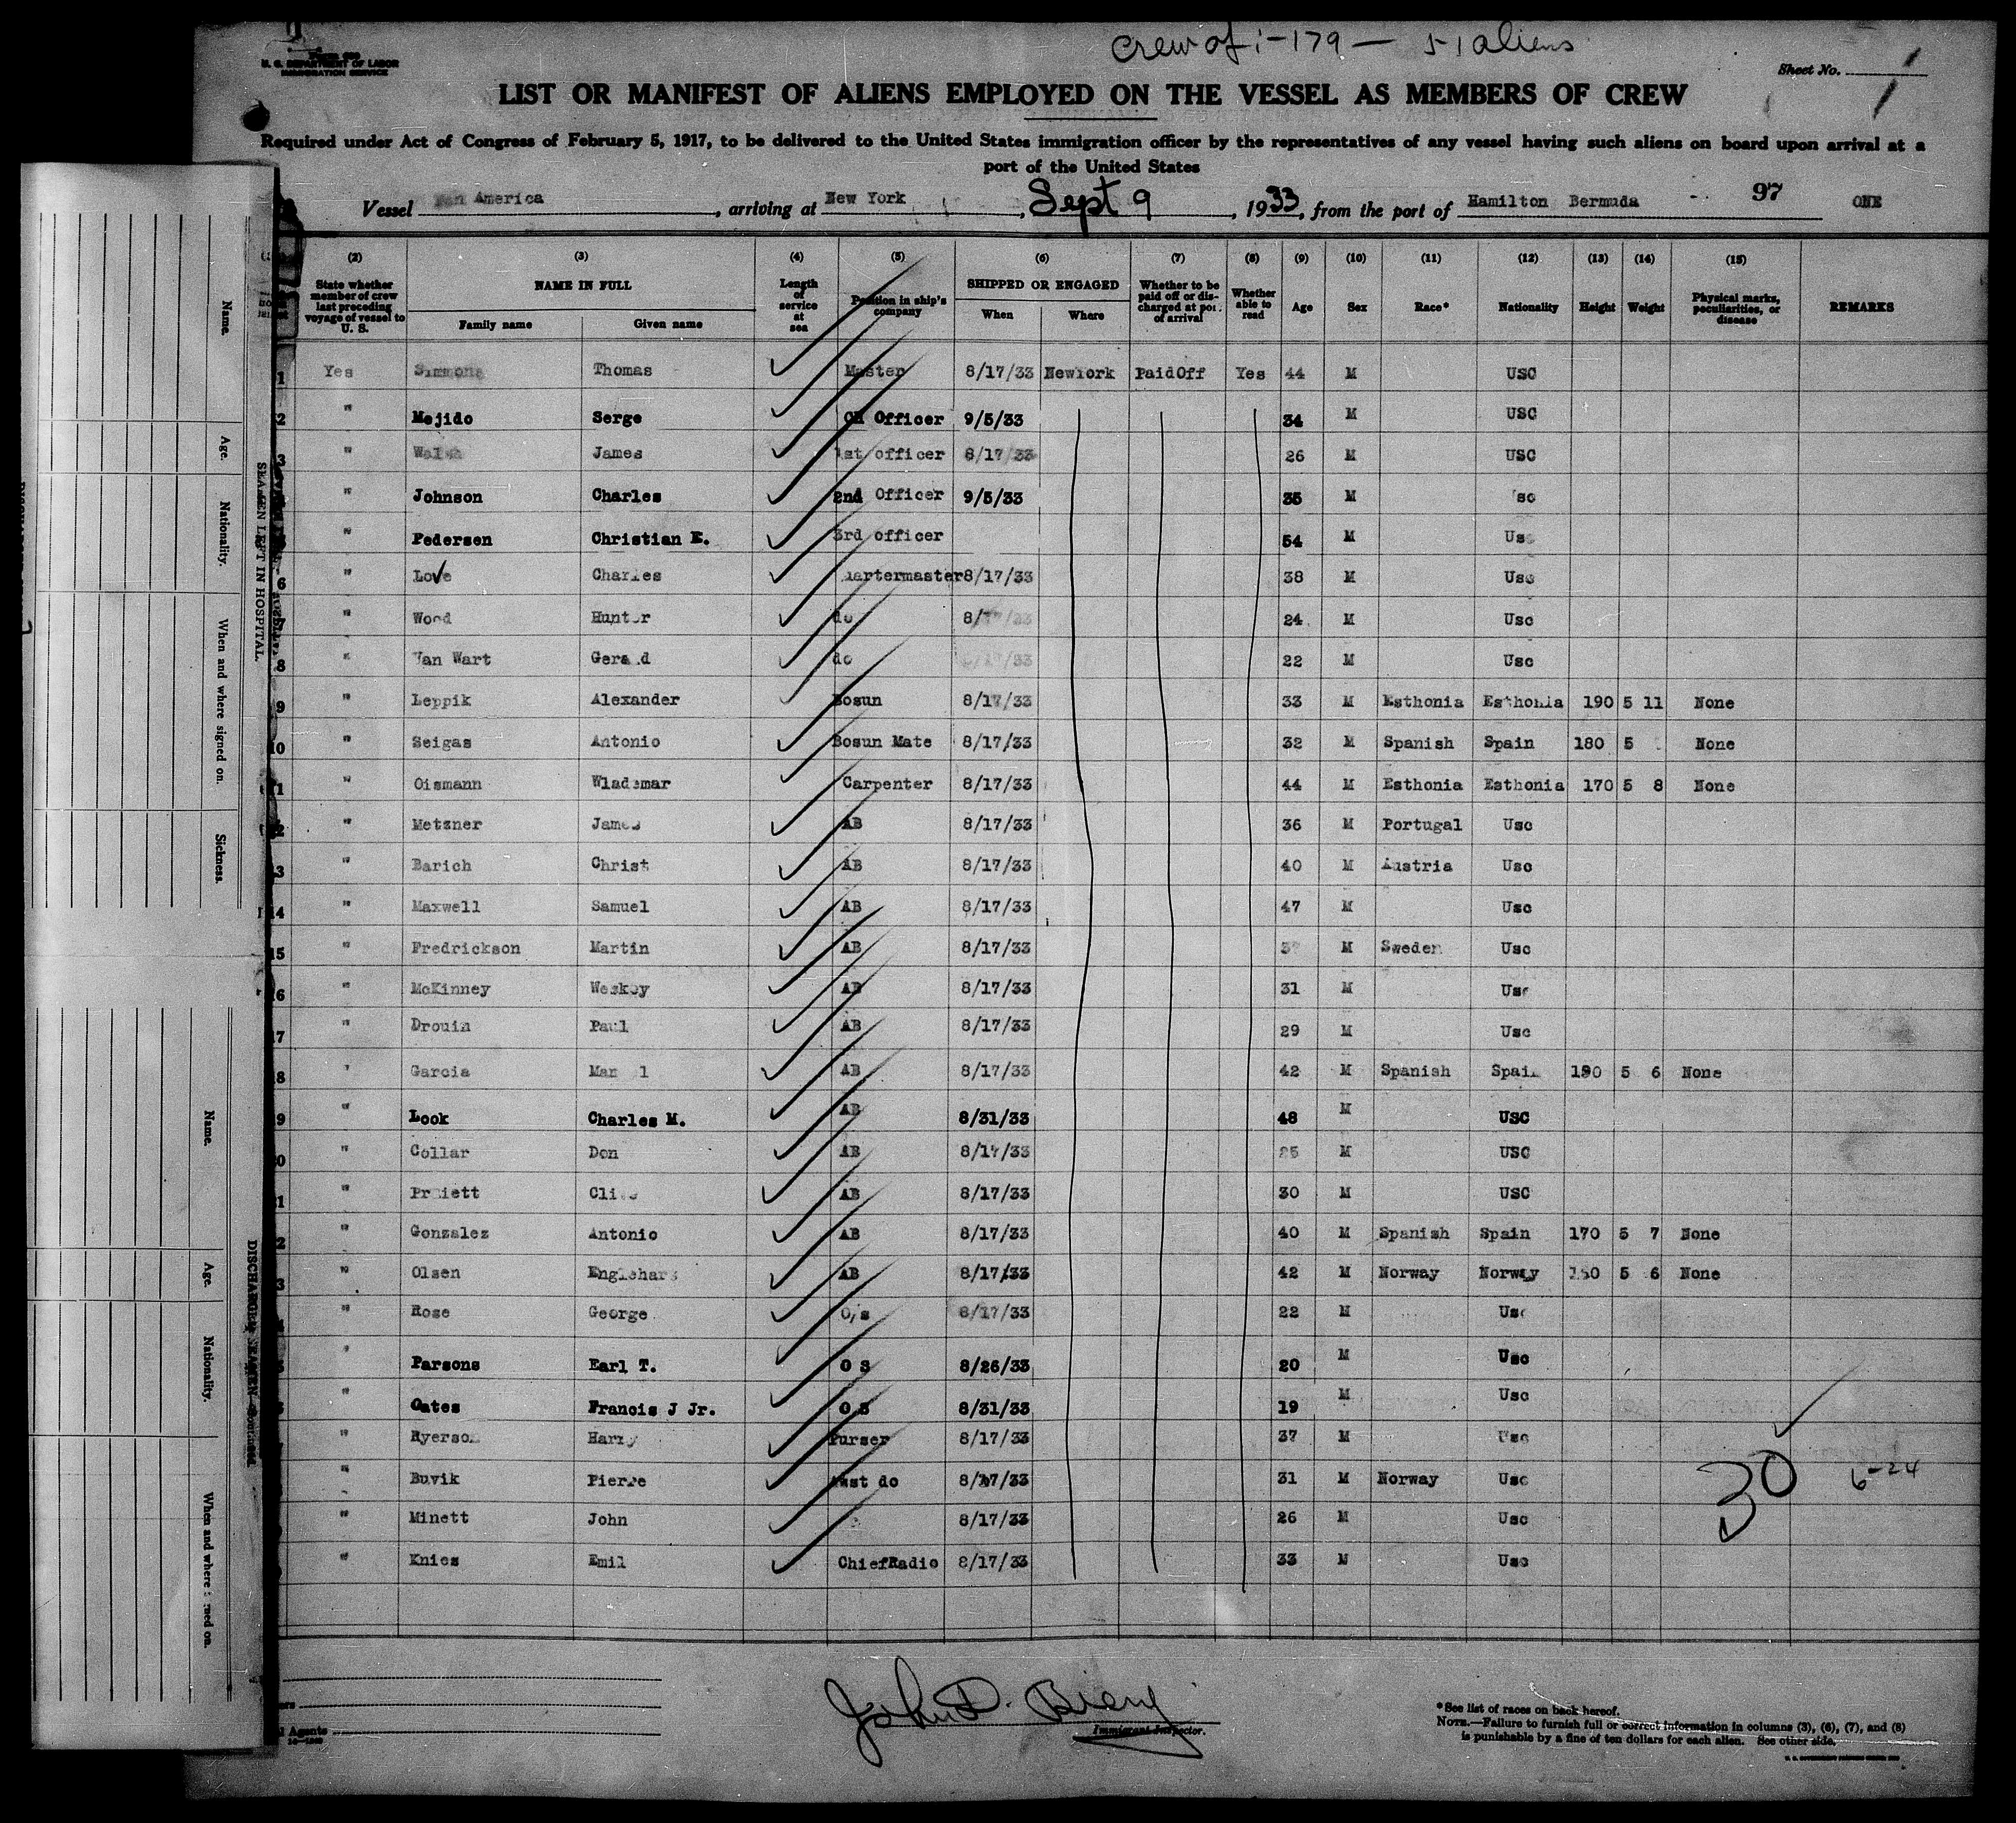 Crew of :- 179 - 51 aliens
U. S. DEPARTMENT OF LABOR
IMMIGRATION SERVICE
Sheet No. 1
LIST OR MANIFEST OF ALIENS EMPLOYED ON THE VESSEL AS MEMBERS OF CREW
Required under Act of Congress of February 5, 1917, to be delivered to the United States immigration officer by the representatives of any vessel having such aliens on board upon arrival at a
port of the United States
Vessel America, arriving at New York, Sept 9, 1933, from the port of Hamilton Bermuda 97 ONE
(2) (3) (4) (5) (6) (7) (8) (9) (10) (11) (12) (13) (14) (15)
State whether member of crew last preceding voyage of vessel to U. S. NAME IN FULL Family name Given name Length of service at sea Position in ship's company SHIPPED OR ENGAGED When Where Whether to be paid off or discharged at port of arrival Whether able to read Age Sex Race* Nationality Height Weight Physical marks, peculiarities, or disease REMARKS
1 Yes Simmons Thomas Master 8/17/33 NewYork PaidOff Yes 44 M USC
2 " Mejido Serge Ch Officer 9/5/33 34 M USC
3 " James 1st officer 8/17/33 26 M USC
" Johnson Charles 2nd Officer 9/5/33 35 M sc
" Pedersen Christian E. 3rd officer 54 M Usc
6 " Love Charles uartermaster 8/17/33 38 M Usc
7 " Wood Hunter do 24 M Usc
8 " Van Wart Gerald do 22 M Usc
9 " Leppik Alexander Bosun 8/17/33 33 M Esthonia Esthonia 190 5 11 None
10 " Seigas Antonio Bosun Mate 8/17/33 32 M Spanish Spain 180 5 None
1 " Oismann Wlademar Carpenter 8/17/33 44 M Esthonia Esthonia 170 5 8 None
2 " Metzner James AB 8/17/33 36 M Portugal Usc
3 " Barich Christ AB 8/17/33 40 M Austria Usc
14 " Maxwell Samuel AB 8/17/33 47 M Usc
15 " Fredrickson Martin AB 8/17/33 M Sweden Usc
6 " McKinney AB 8/17/33 31 M Usc
7 " Drouin Paul AB 8/17/33 29 M Usc
8 " Garcia Man l AB 8/17/33 42 M Spanish Spain 190 5 6 None
9 " Look Charles M. AB 8/31/33 48 M USC
0 " Collar Don AB 8/17/33 25 M USC
1 " AB 8/17/33 30 M USC
2 " Gonzalez Antonio AB 8/17/33 40 M Spanish Spain 170 5 7 None
3 " Olsen AB 8/17/33 42 M Norway Norway 5 6 None
" Rose George O/s 8/17/33 22 M Usc
" Parsons Earl T. O S 8/26/33 20 M Usc
" Oates Francis J Jr. O S 8/31/33 19 M Usc
" Ryerson Harry Purser 8/17/33 37 M Usc
" Buvik Pierre Asst do 8/17/33 31 M Norway Usc
" Minett John 8/17/33 26 M Usc
" Knies Emil ChiefRadio 8/17/33 33 M Usc
30 6-24
John D. Bieny
Immigrant Inspector.
*See list of races on back hereof.
NOTE.—Failure to furnish full or correct information in columns (3), (6), (7), and (8)
is punishable by a fine of ten dollars for each alien. See other side.
Name.
Age.
Nationality.
When and where signed on.
Sickness.
SEAMEN LEFT IN HOSPITAL.
Name.
Age.
Nationality.
When and where
DISCHARGED SEAMEN—Continued
Agents